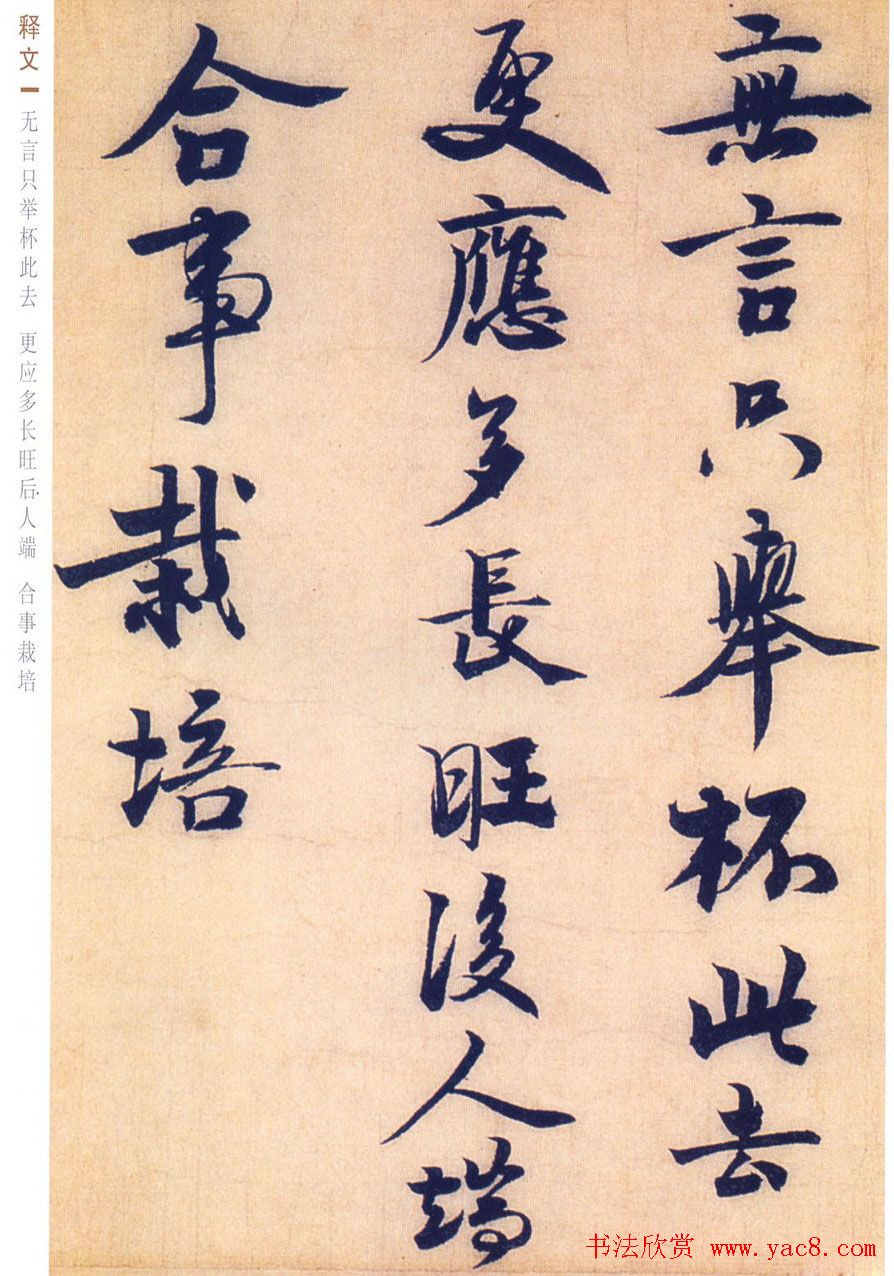 無言只舉杯此去
更應多長旺後人端
合事栽培
释文
无言只举杯此去 更应多长旺后人端 合事栽培
书法欣赏 www.yac8.com